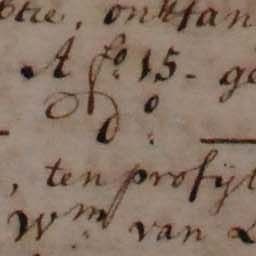 ptie, ontfan
A fo. 15 - ge
do.
, ten profijt
Wm van